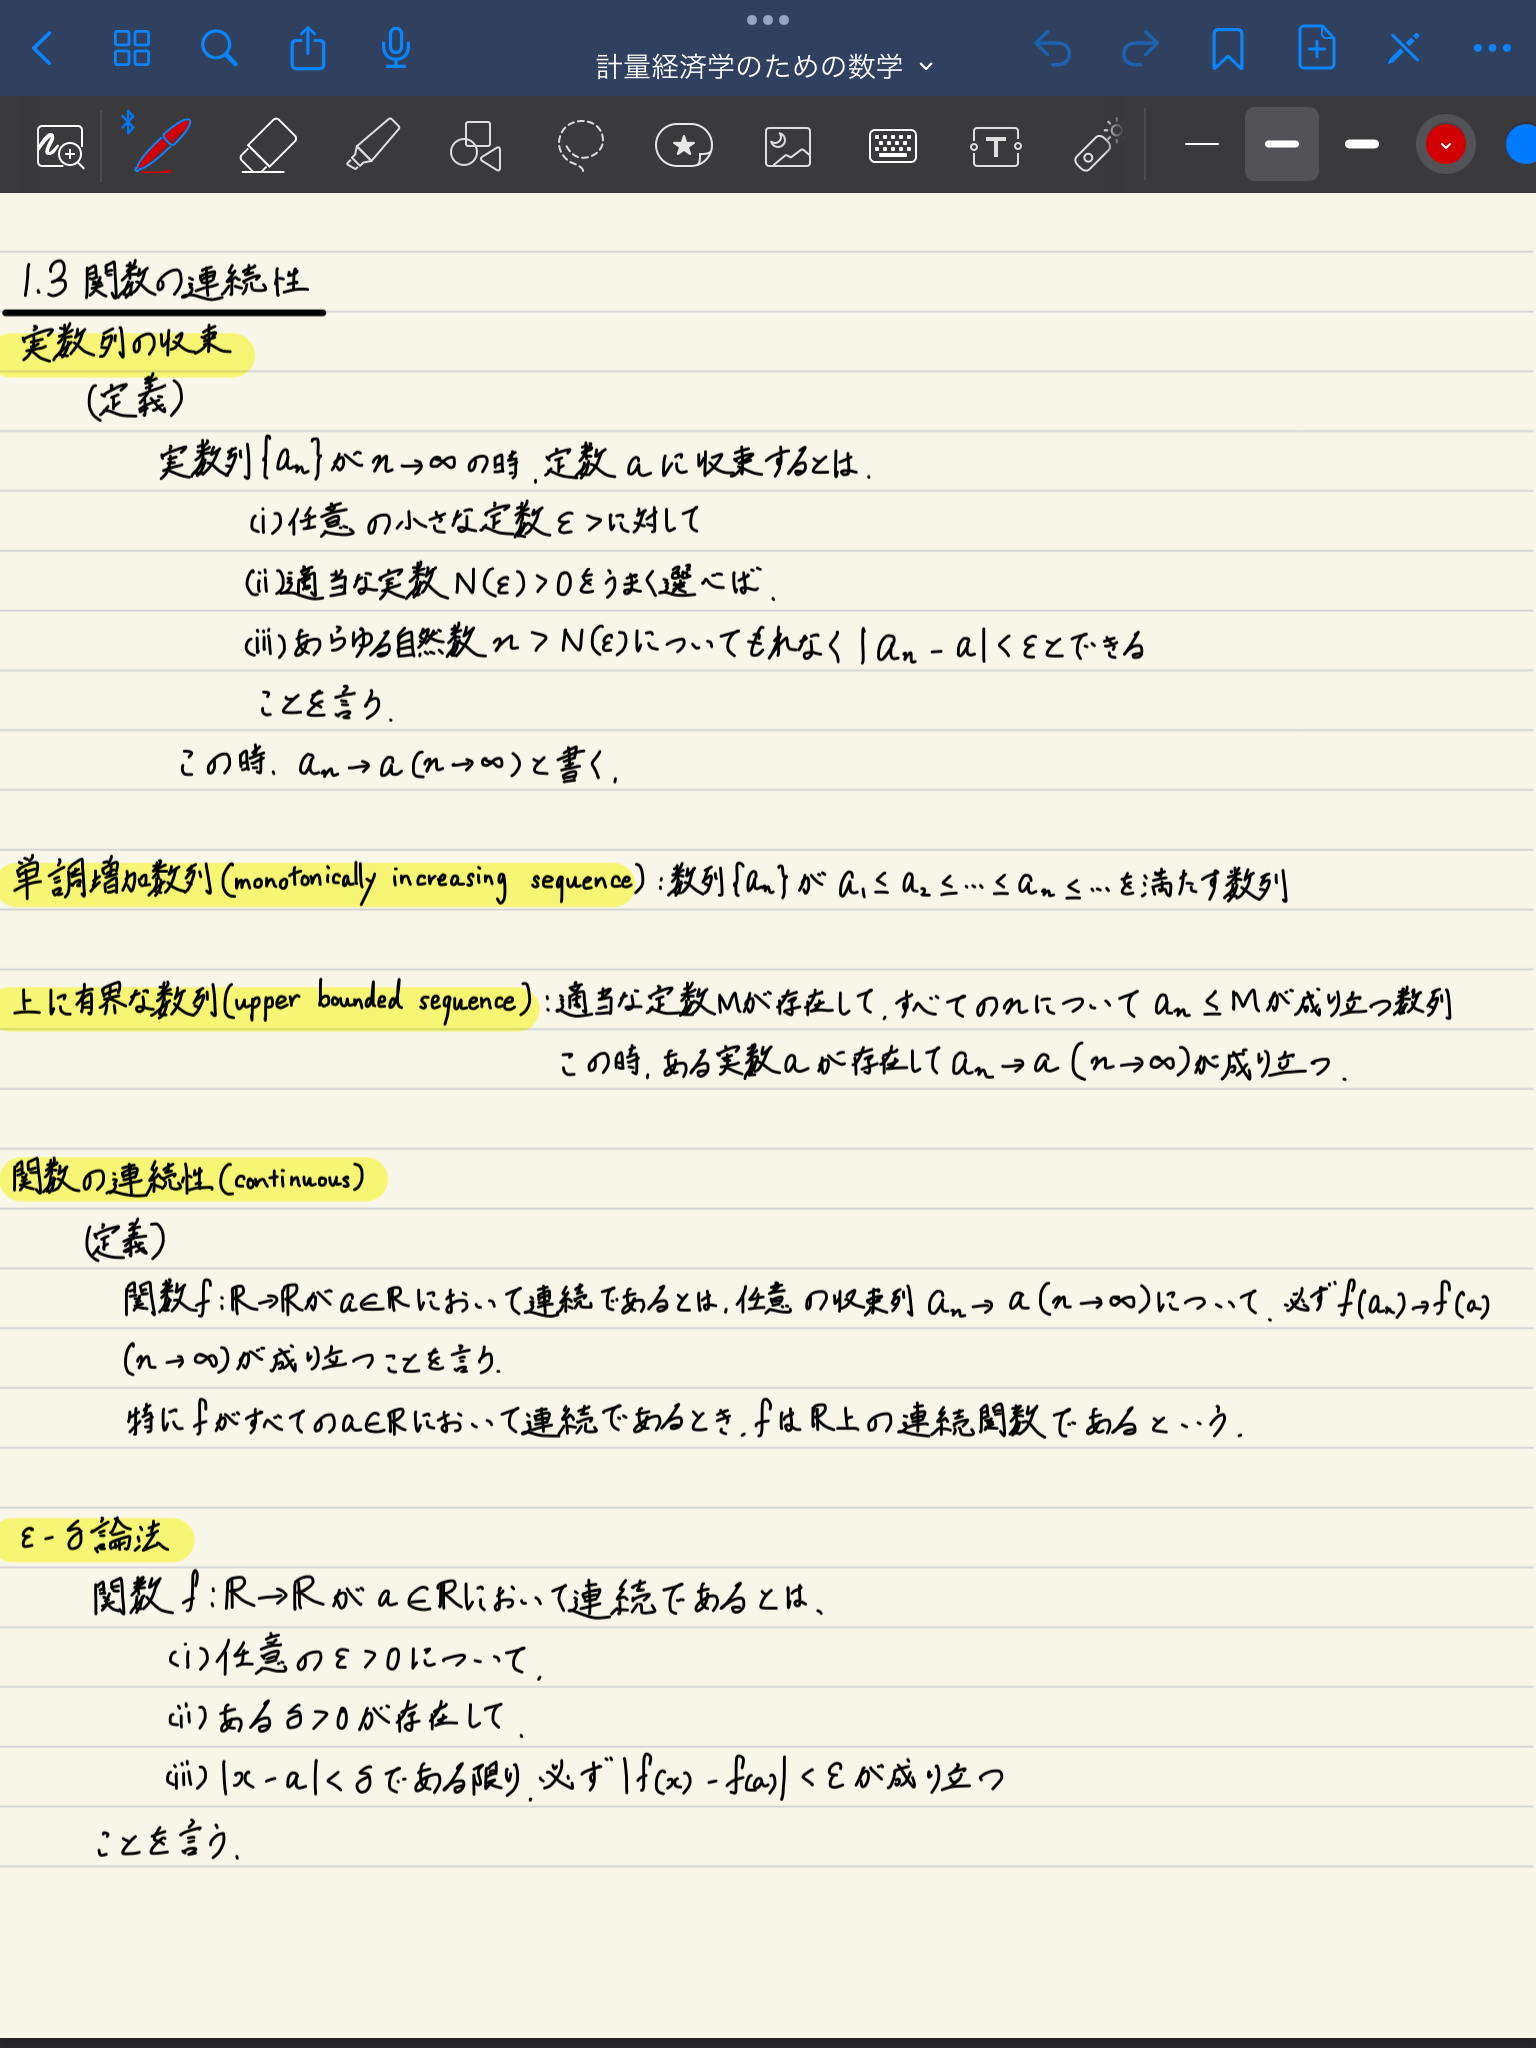 計量経済学のための数学
1.3 関数の連続性
実数列の収束
(定義)
実数列{aₙ}がn→∞の時, 定数aに収束するとは.
(i)任意の小さな定数ε>に対して
(ii)適当な実数N(ε)>0をうまく選べば.
(iii)あらゆる自然数n>N(ε)についてもれなく|aₙ-a|<εとできる
ことを言う.
この時. aₙ→a(n→∞)と書く.
単調増加数列(monotonically increasing sequence):数列{aₙ}がa₁≤a₂≤…≤aₙ≤…を満たす数列
上に有界な数列(upper bounded sequence):適当な定数Mが存在して,すべてのnについてaₙ≤Mが成り立つ数列
この時,ある実数aが存在してaₙ→a(n→∞)が成り立つ.
関数の連続性(continuous)
(定義)
関数f:ℝ→ℝがa∈ℝにおいて連続であるとは,任意の収束列aₙ→a(n→∞)について,必ずf(aₙ)→f(a)
(n→∞)が成り立つことを言う.
特にfがすべてのa∈ℝにおいて連続であるとき,fはℝ上の連続関数であるという.
ε-δ論法
関数f:ℝ→ℝがa∈ℝにおいて連続であるとは、
(i)任意のε>0について,
(ii)あるδ>0が存在して,
(iii)|x-a|<δである限り,必ず|f(x)-f(a)|<εが成り立つ
ことを言う.